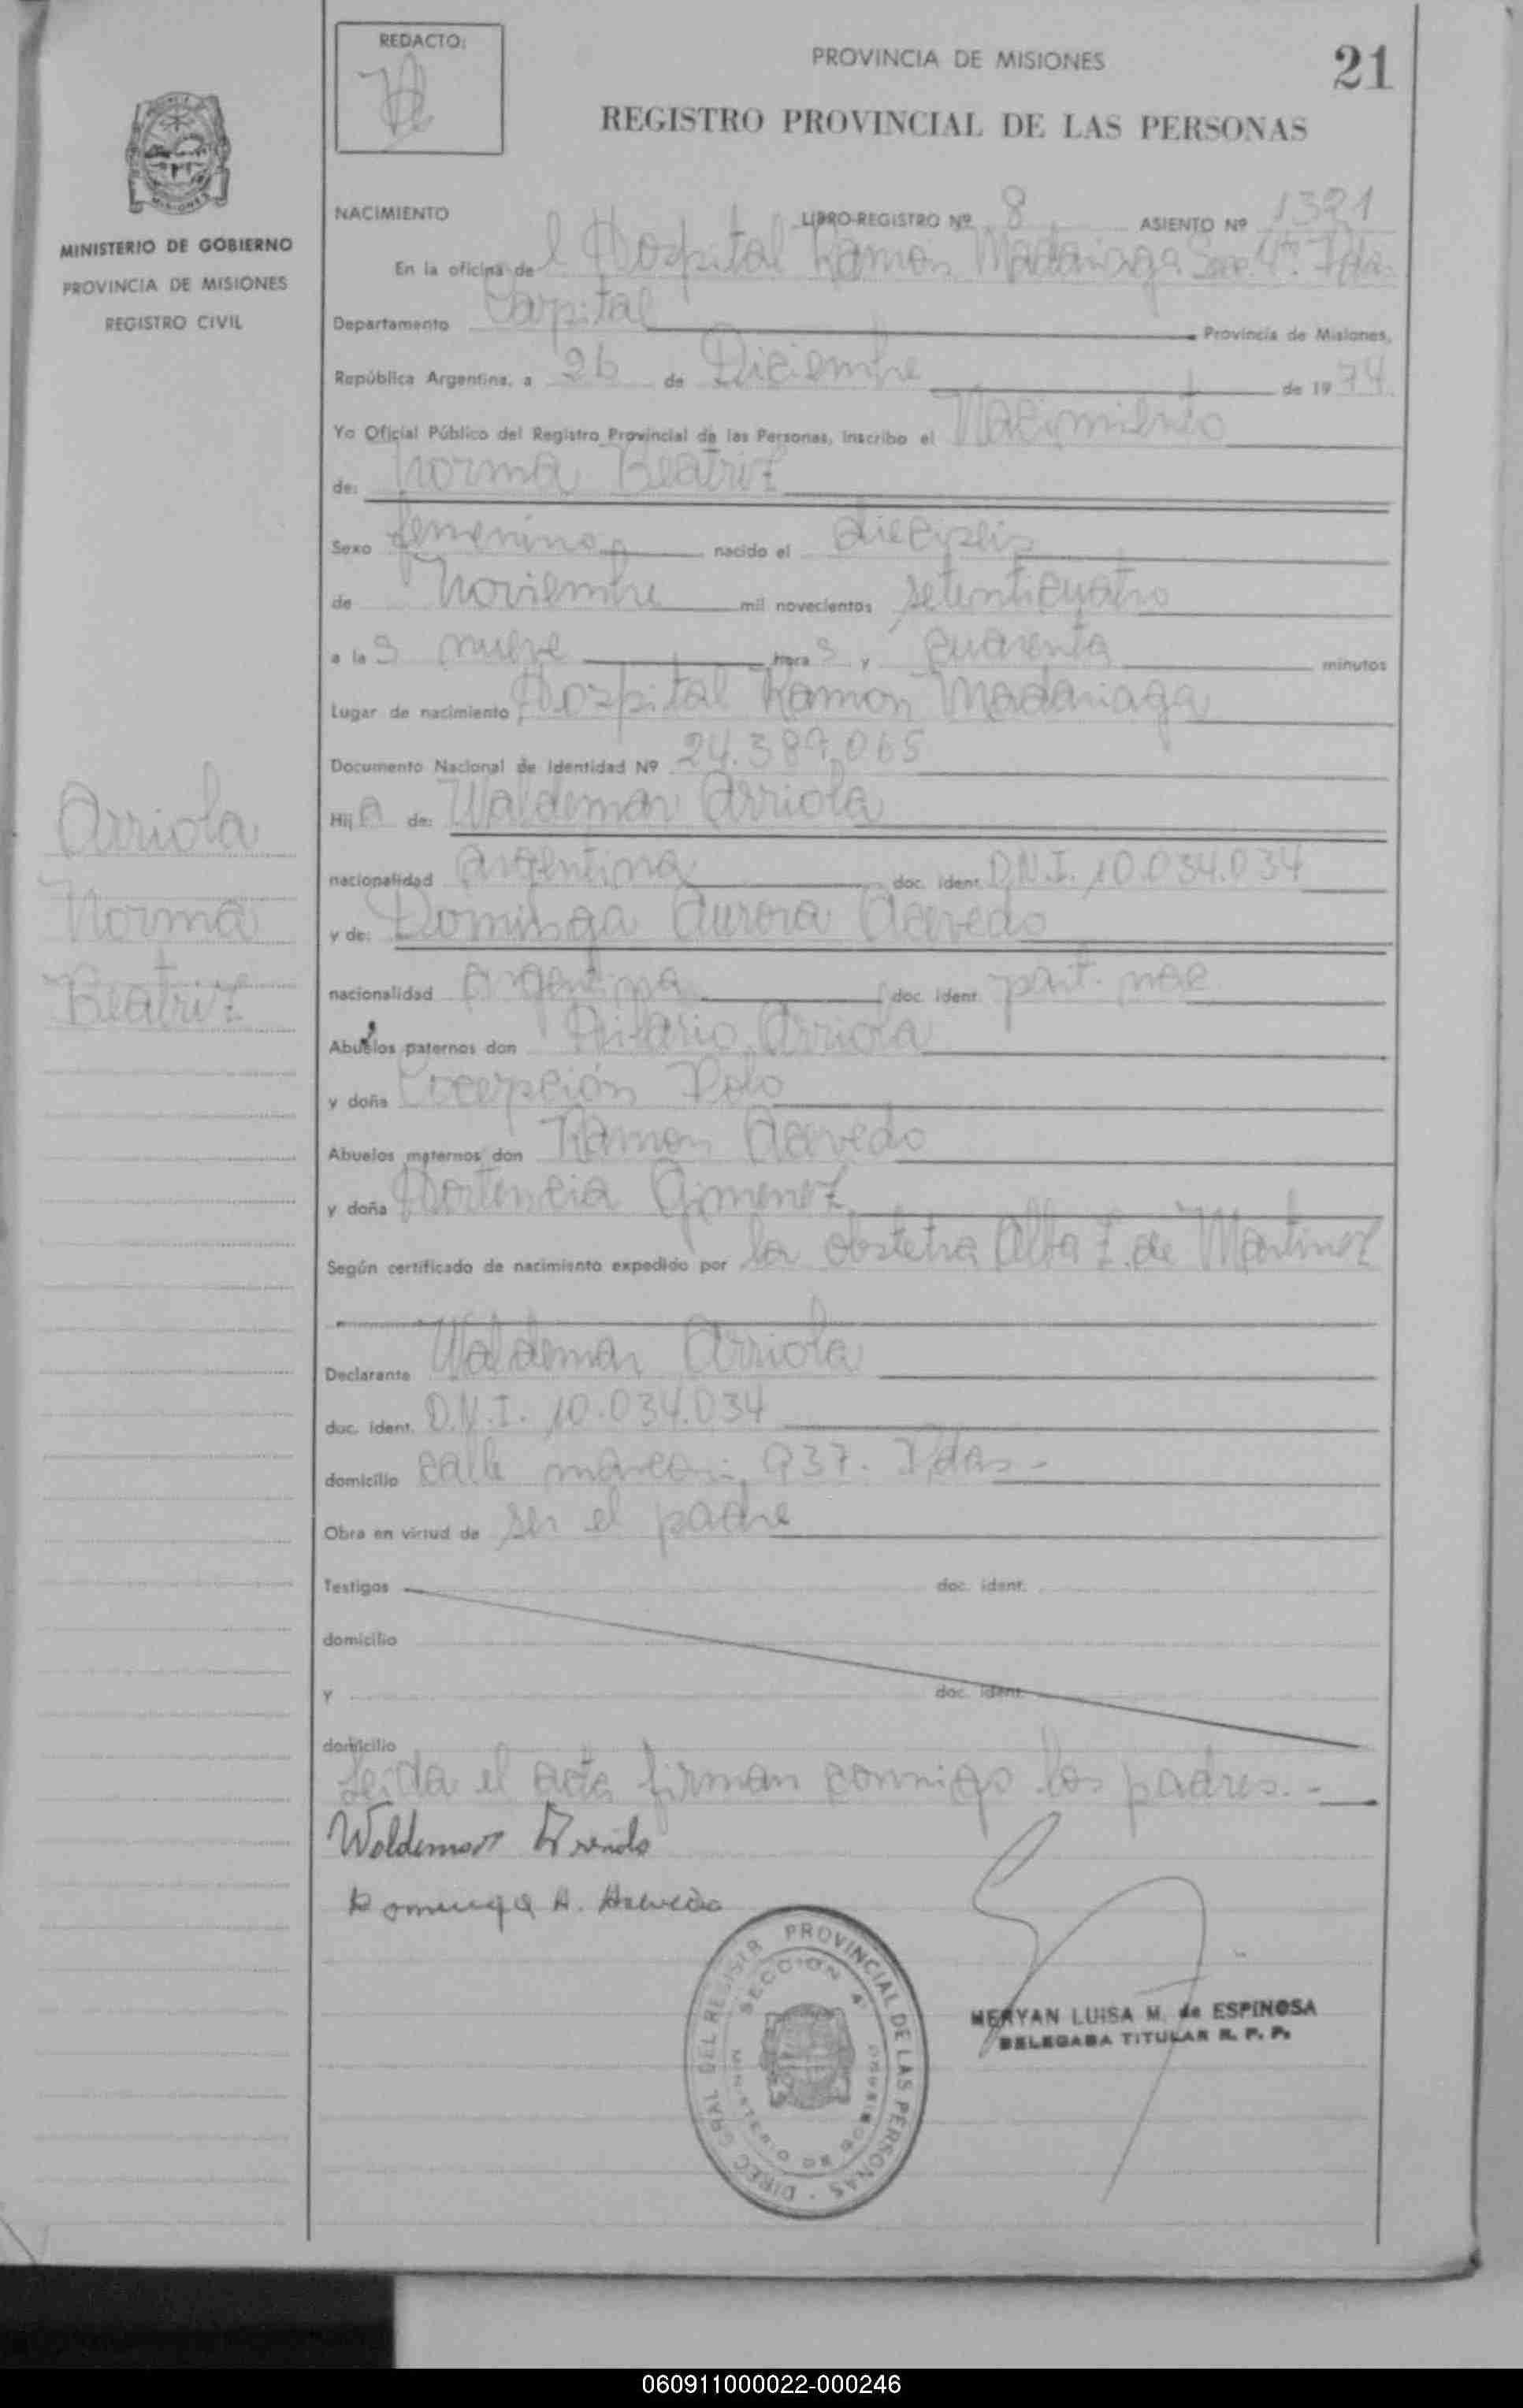 REDACTO:
PROVINCIA DE MISIONES
21
REGISTRO PROVINCIAL DE LAS PERSONAS
MISIONES
MINISTERIO DE GOBIERNO
PROVINCIA DE MISIONES
REGISTRO CIVIL
NACIMIENTO LIBRO-REGISTRO Nº 8 ASIENTO Nº 1391
En la oficina del Hospital Ramón Madariaga Secc. 4ta. Pdas.
Departamento Capital Provincia de Misiones,
República Argentina, a 26 de Diciembre de 1974
Yo Oficial Público del Registro Provincial de las Personas, inscribo el Nacimiento
de: Norma Beatriz
Sexo femenino nacido el dieciseis
de Noviembre mil novecientos setenticuatro
a las nueve horas y cuarenta minutos
Lugar de nacimiento Hospital Ramón Madariaga
Documento Nacional de Identidad Nº 24.387.065
Hija de: Waldemar Arriola
nacionalidad argentina doc. ident. D.N.I. 10.034.034
y de: Dominga Aurora Acevedo
nacionalidad Argentina doc. ident. part. nac
Abuelos paternos don Hilario Arriola
y doña Cocepción Polo
Abuelos maternos don Ramon Acevedo
y doña Hortencia Gimenez
Según certificado de nacimiento expedido por la obstetra Alba Z. de Martinez
Declarante Waldemar Arriola
doc. ident. D.N.I. 10.034.034
domicilio calle 937. Pdas-
Obra en virtud de ser el padre
Testigos doc. ident.
domicilio
Y doc. ident.
domicilio
Leida el acta firman conmigo los padres.-
Arriola
Norma
Beatriz
Waldemar Arriola
Dominga A. Acevedo
DIREC GRAL DEL REGISTR PROVINCIAL DE LAS PERSONAS
SECCION 4ª
MINISTERIO DE GOBIERNO
MERYAN LUISA M. de ESPINOSA
DELEGADA TITULAR R. P. P.
060911000022-000246